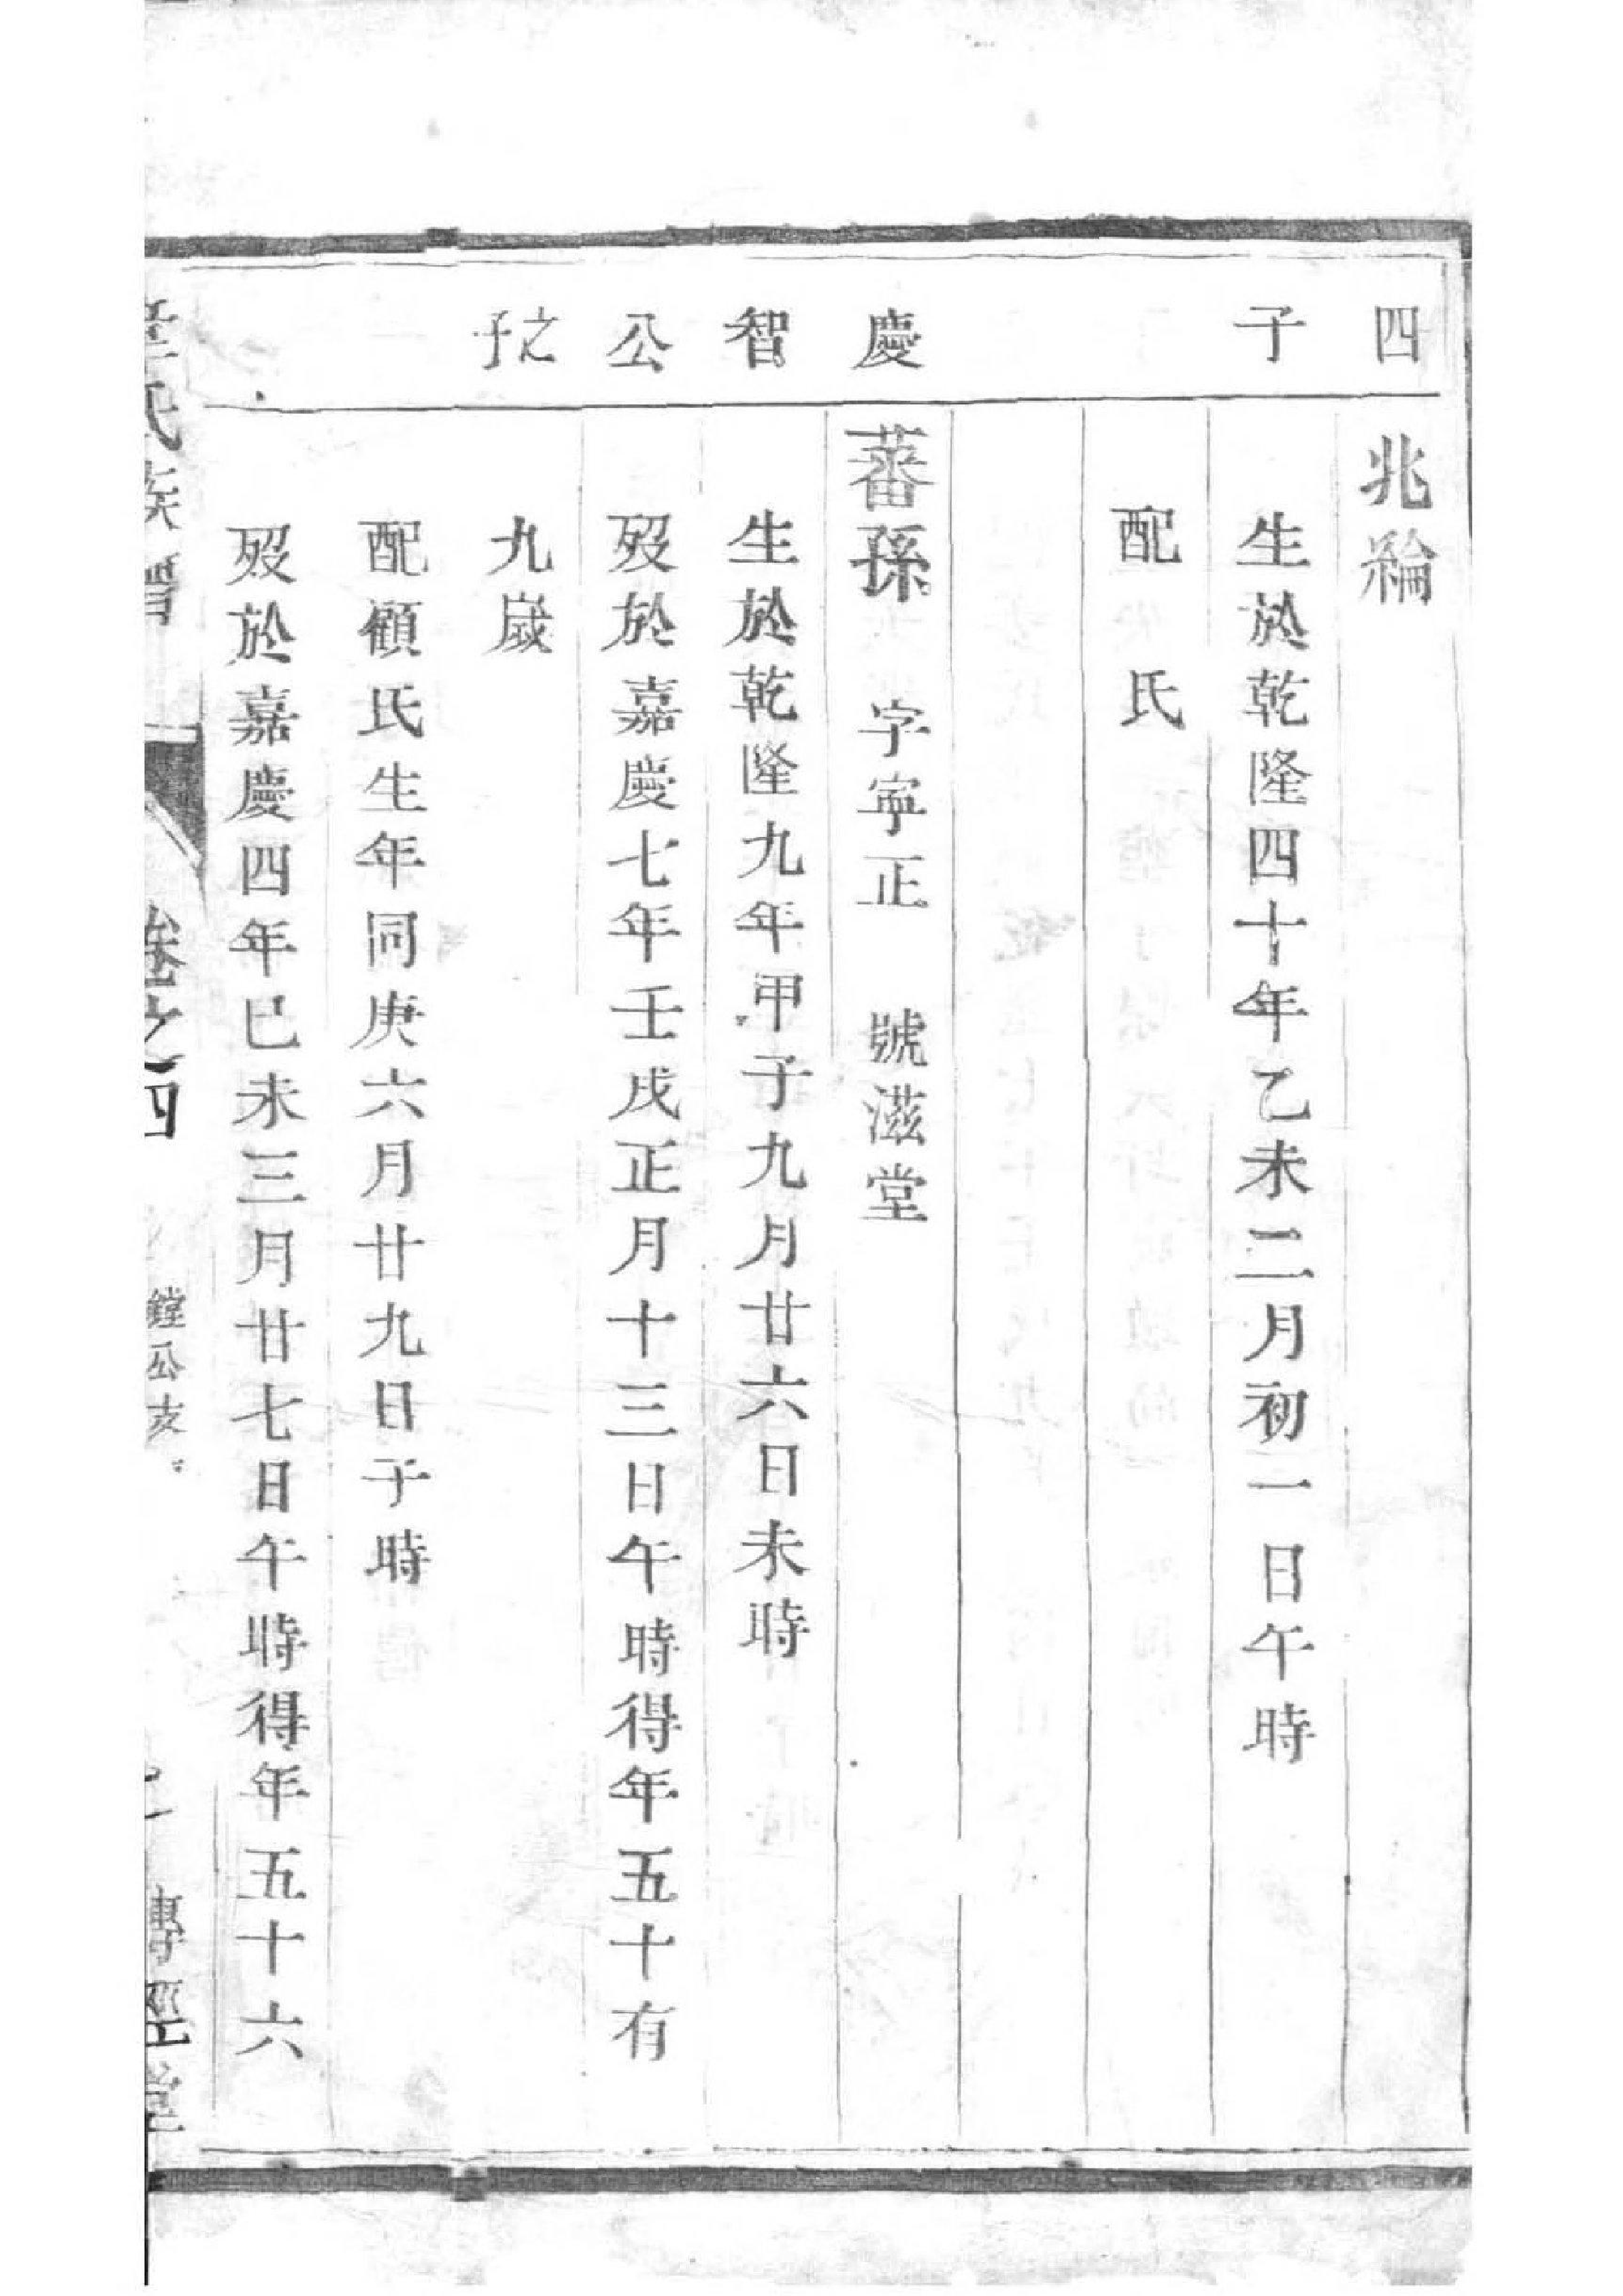 四
子
兆綸
生於乾隆四十年乙未二月初一日午時
配　氏
慶
智
公
之子
蕃孫　字寧正　號滋堂
生於乾隆九年甲子九月廿六日未時
歿於嘉慶七年壬戌正月十三日午時得年五十有
九歲
配顧氏生年同庚六月廿九日子時
歿於嘉慶四年巳未三月廿七日午時得年五十六
氏族譜
卷之四
鏜公支
傳經堂